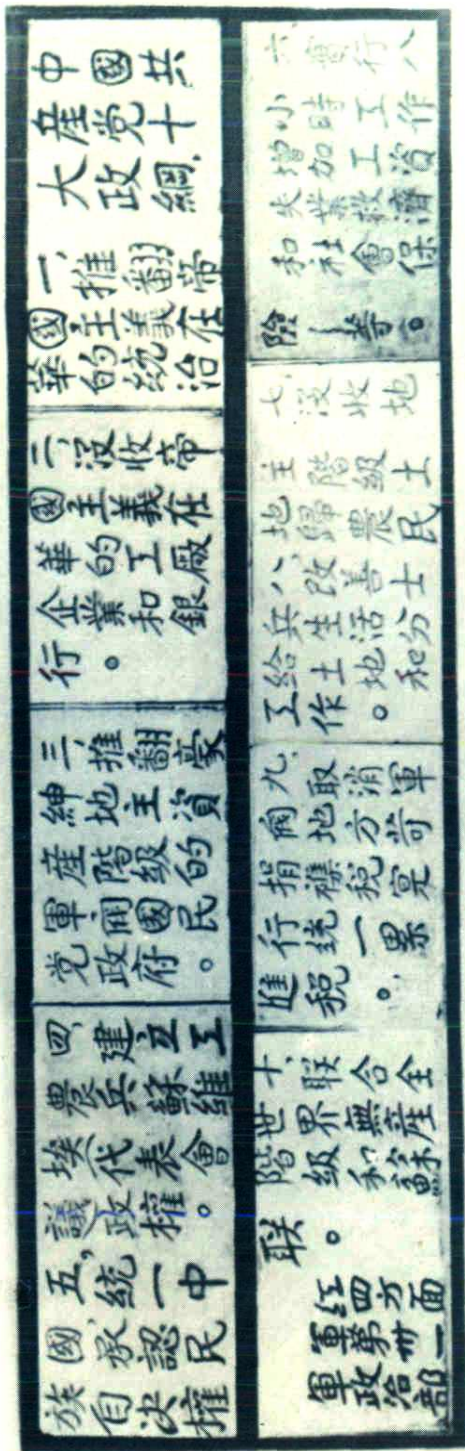 中國共
産党十
大政綱.
一、推翻帝
國主義在
華的統治
二、沒收帝
國主義在
華的工廠
企業和銀
行。
三、推翻豪
紳地主資
産階級的
軍閥國民
党政府。
四、建立工
農兵蘇維
埃代表會
議政權。
五,統一中
國,承認民
族自決權
六、實行八
小時工作
增加工資
失業救濟
和社會保
險等。
七、沒收地
主階級土
地歸農民
八、改善士
兵生活分
給土地和
工作。
九、取消軍
閥地方苛
捐雜税完
行統一累
進税。
十、联合全
世界無産
階级和蘇
联。
红四方面
軍第卅一
軍政治部